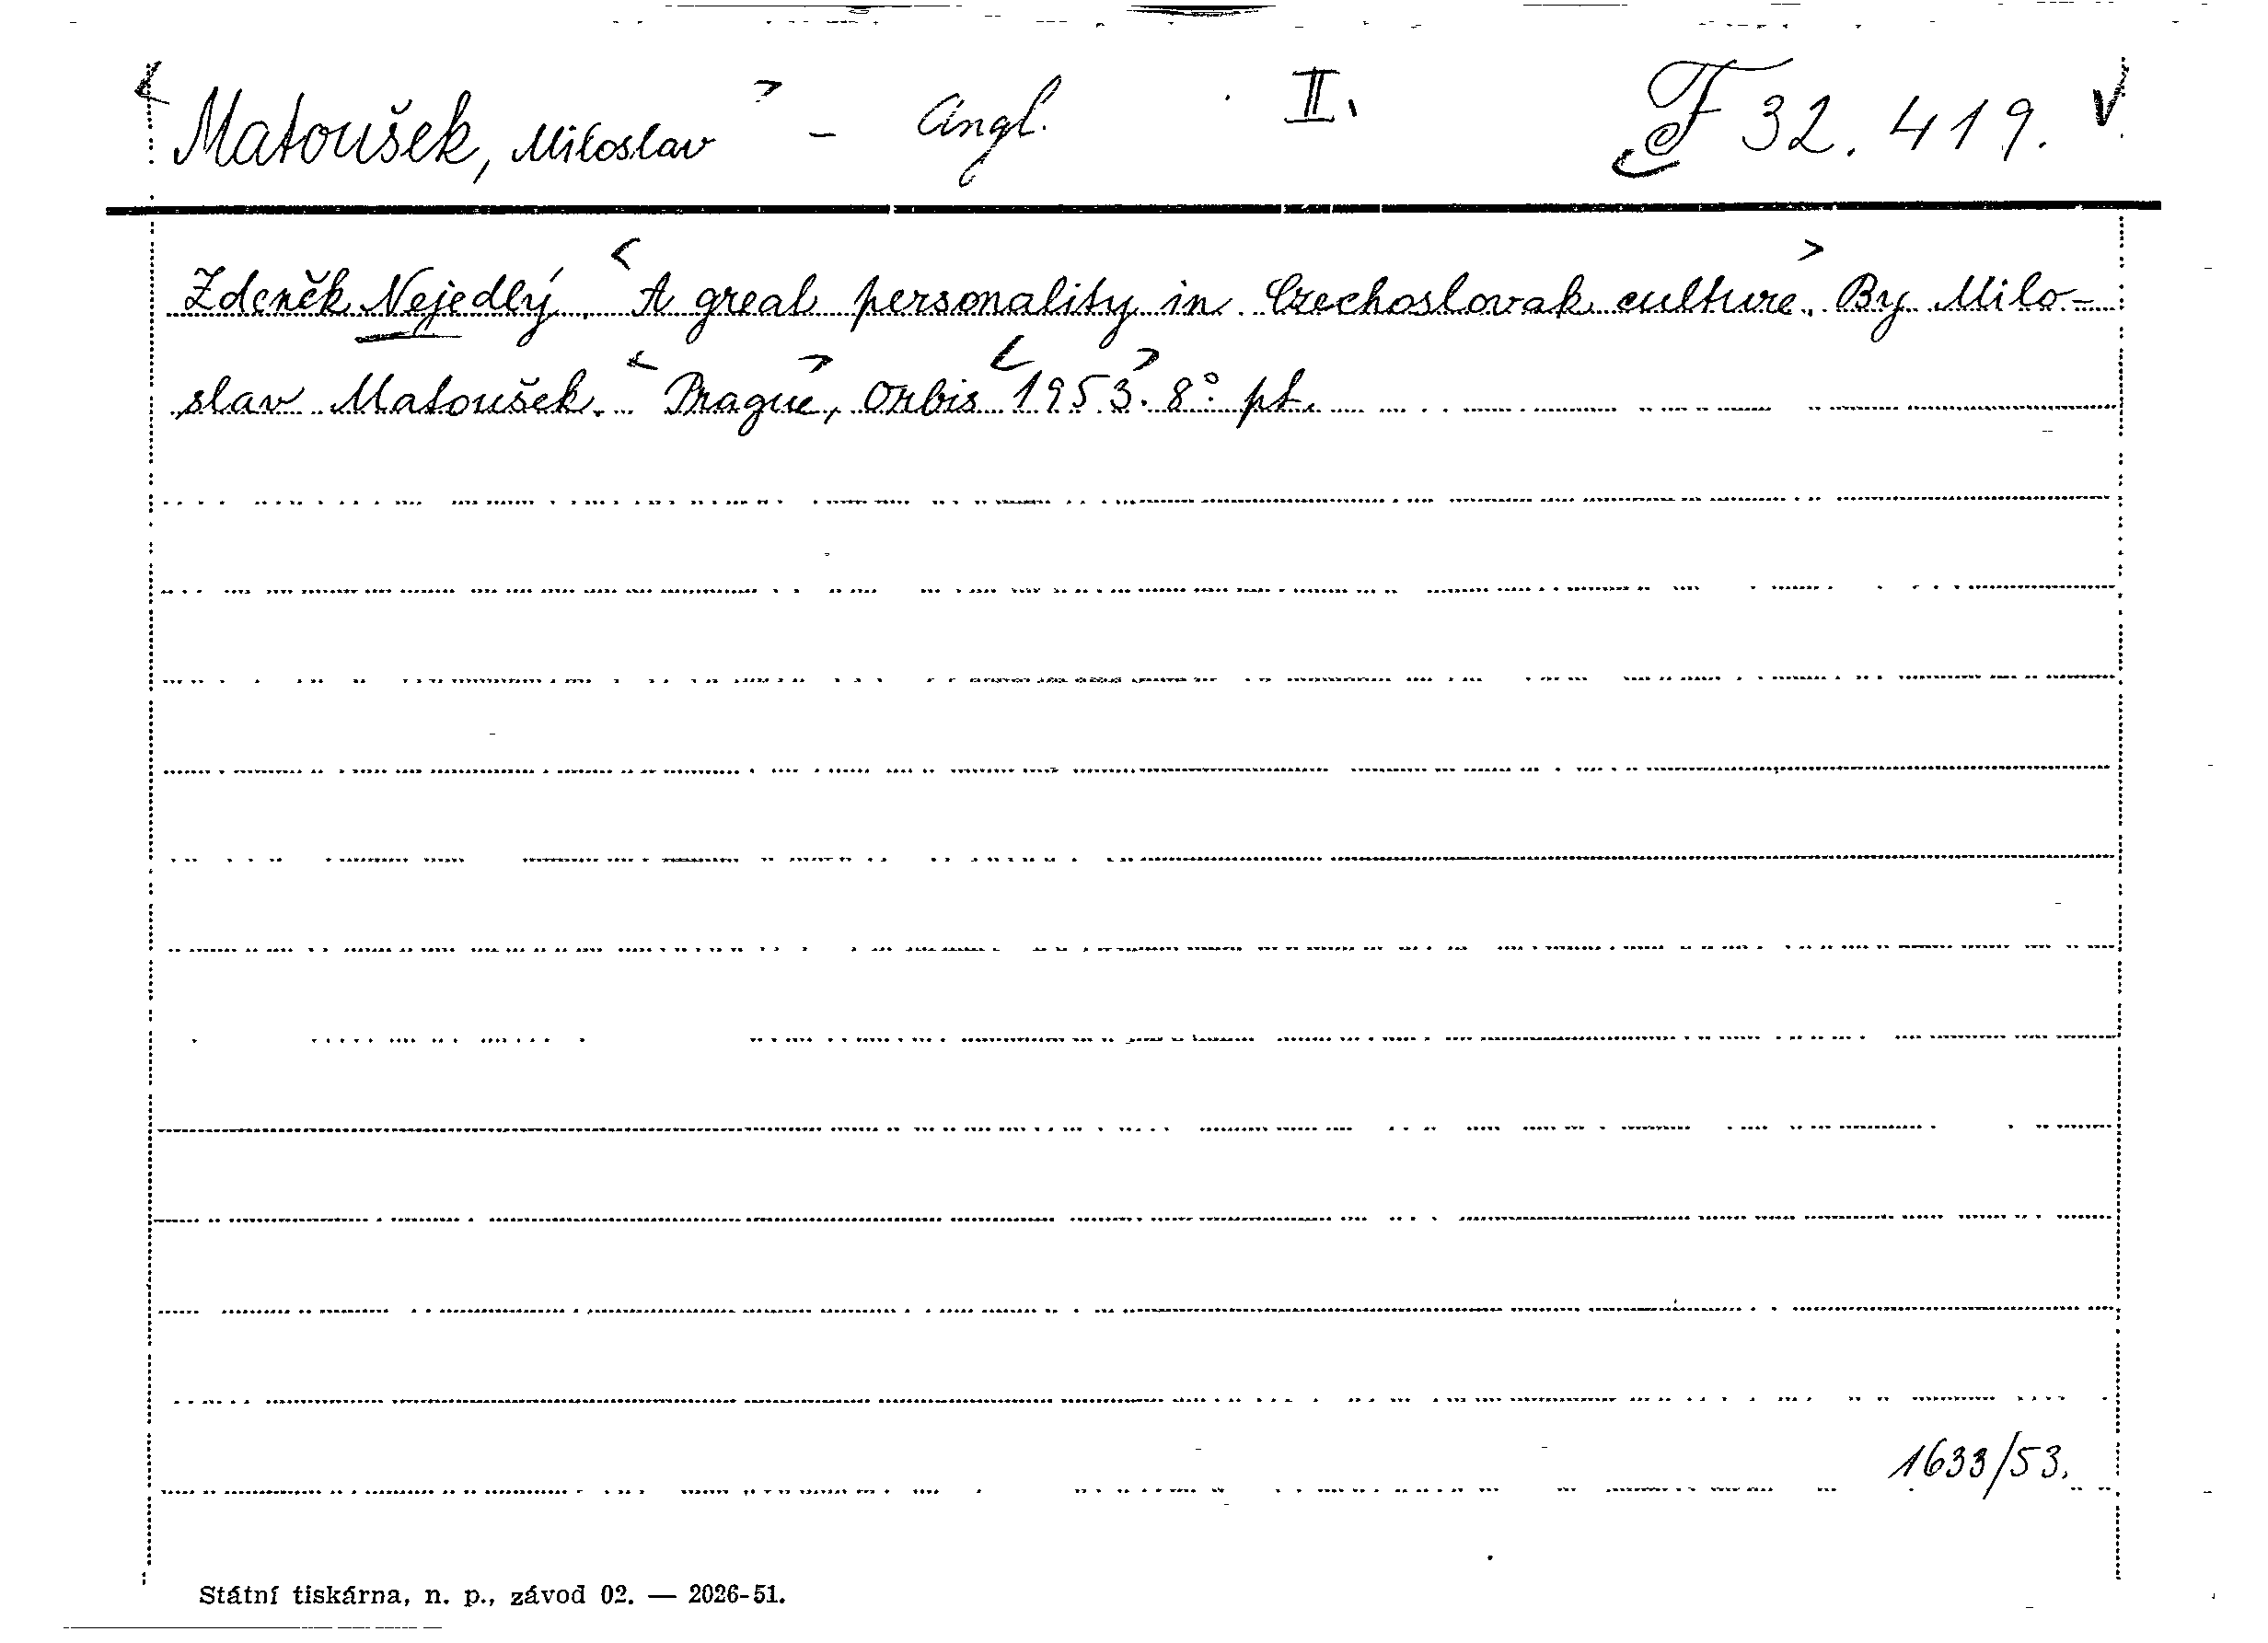 < Matoušek, Miloslav > - Angl. II. F 32.419. V
Zdeněk Nejedlý. < A great personality in Czechoslovak culture. > By Milo-
slav Matoušek. < Prague >, Orbis < 1953 >. 8°. pt.
1633/53.
Státní tiskárna, n. p., závod 02. — 2026-51.